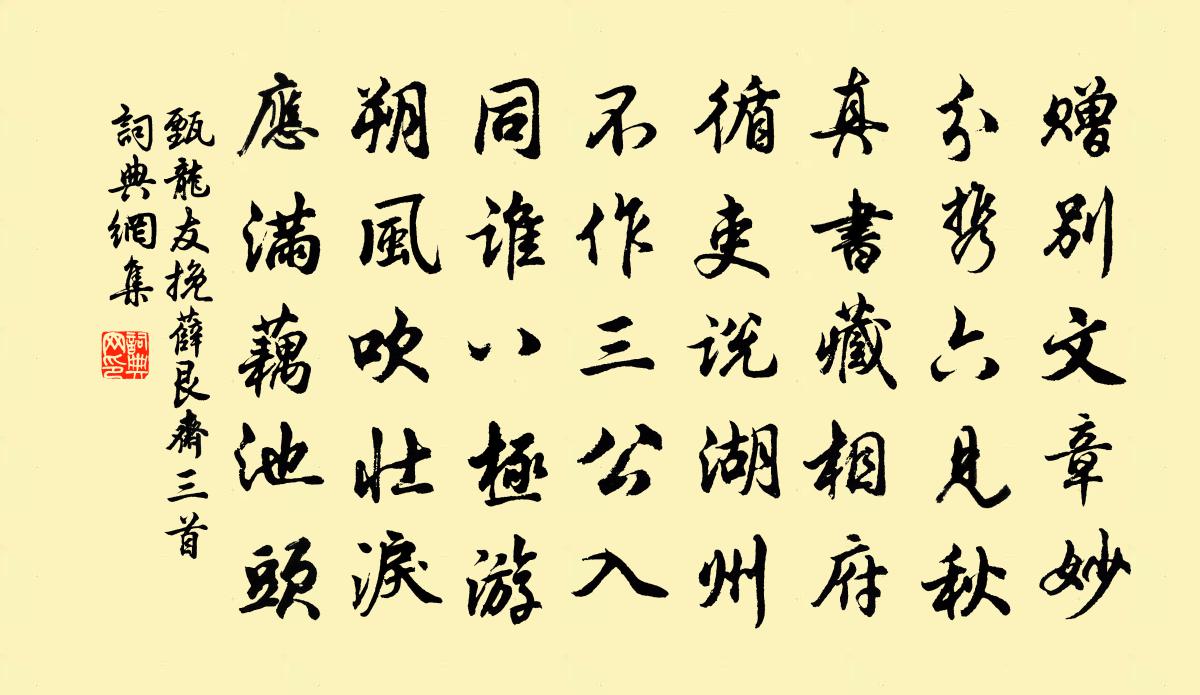 赠别文章妙
分携六见秋
真書藏相府
循吏说湖州
不作三公入
同谁八極游
朔風吹壮淚
應滿藕池頭
甄龍友挽薛艮齋三首
詞典網集
詞典網印